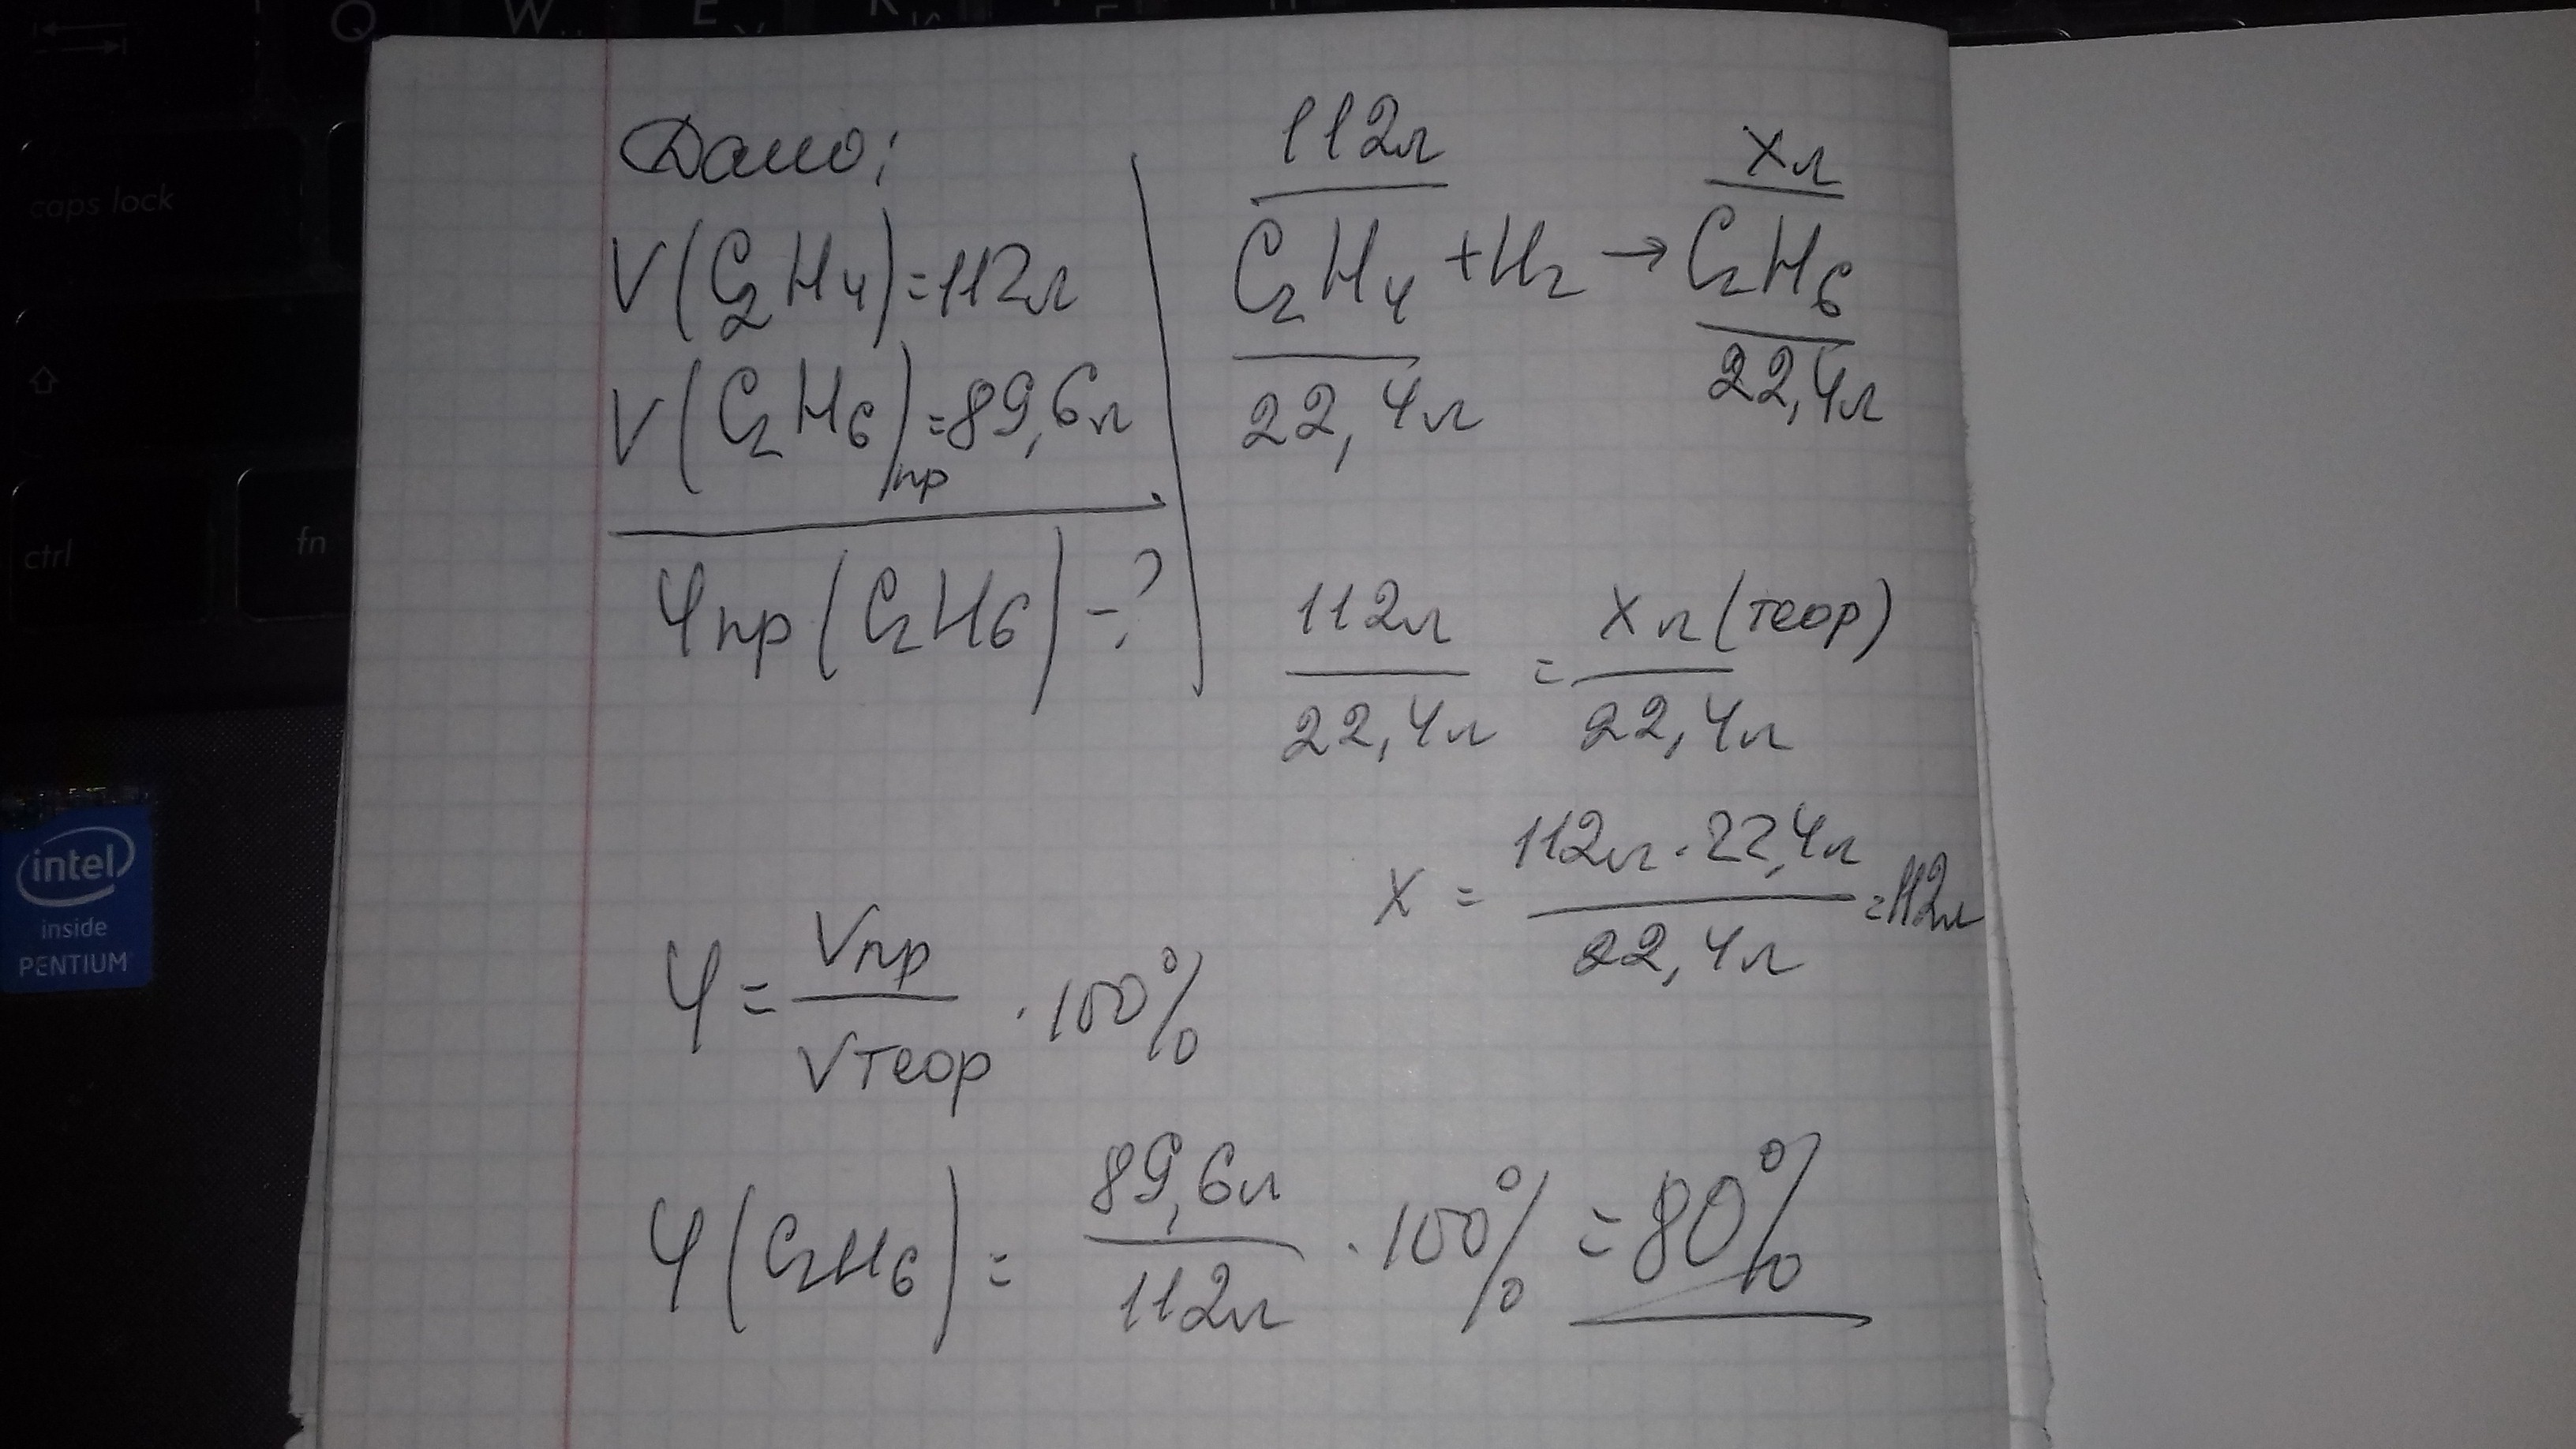 Q W E R
caps lock
ctrl fn
intel
inside
PENTIUM
Дано:
V(C₂H₄)=112л
V(C₂H₆)пр=89,6л
φпр(C₂H₆)-?
112л xл
C₂H₄+H₂→C₂H₆
22,4л 22,4л
112л/22,4л = xл(теор)/22,4л
x = 112л·22,4л/22,4л =112л
φ = Vпр/Vтеор ·100%
φ(C₂H₆) = 89,6л/112л ·100% =80%